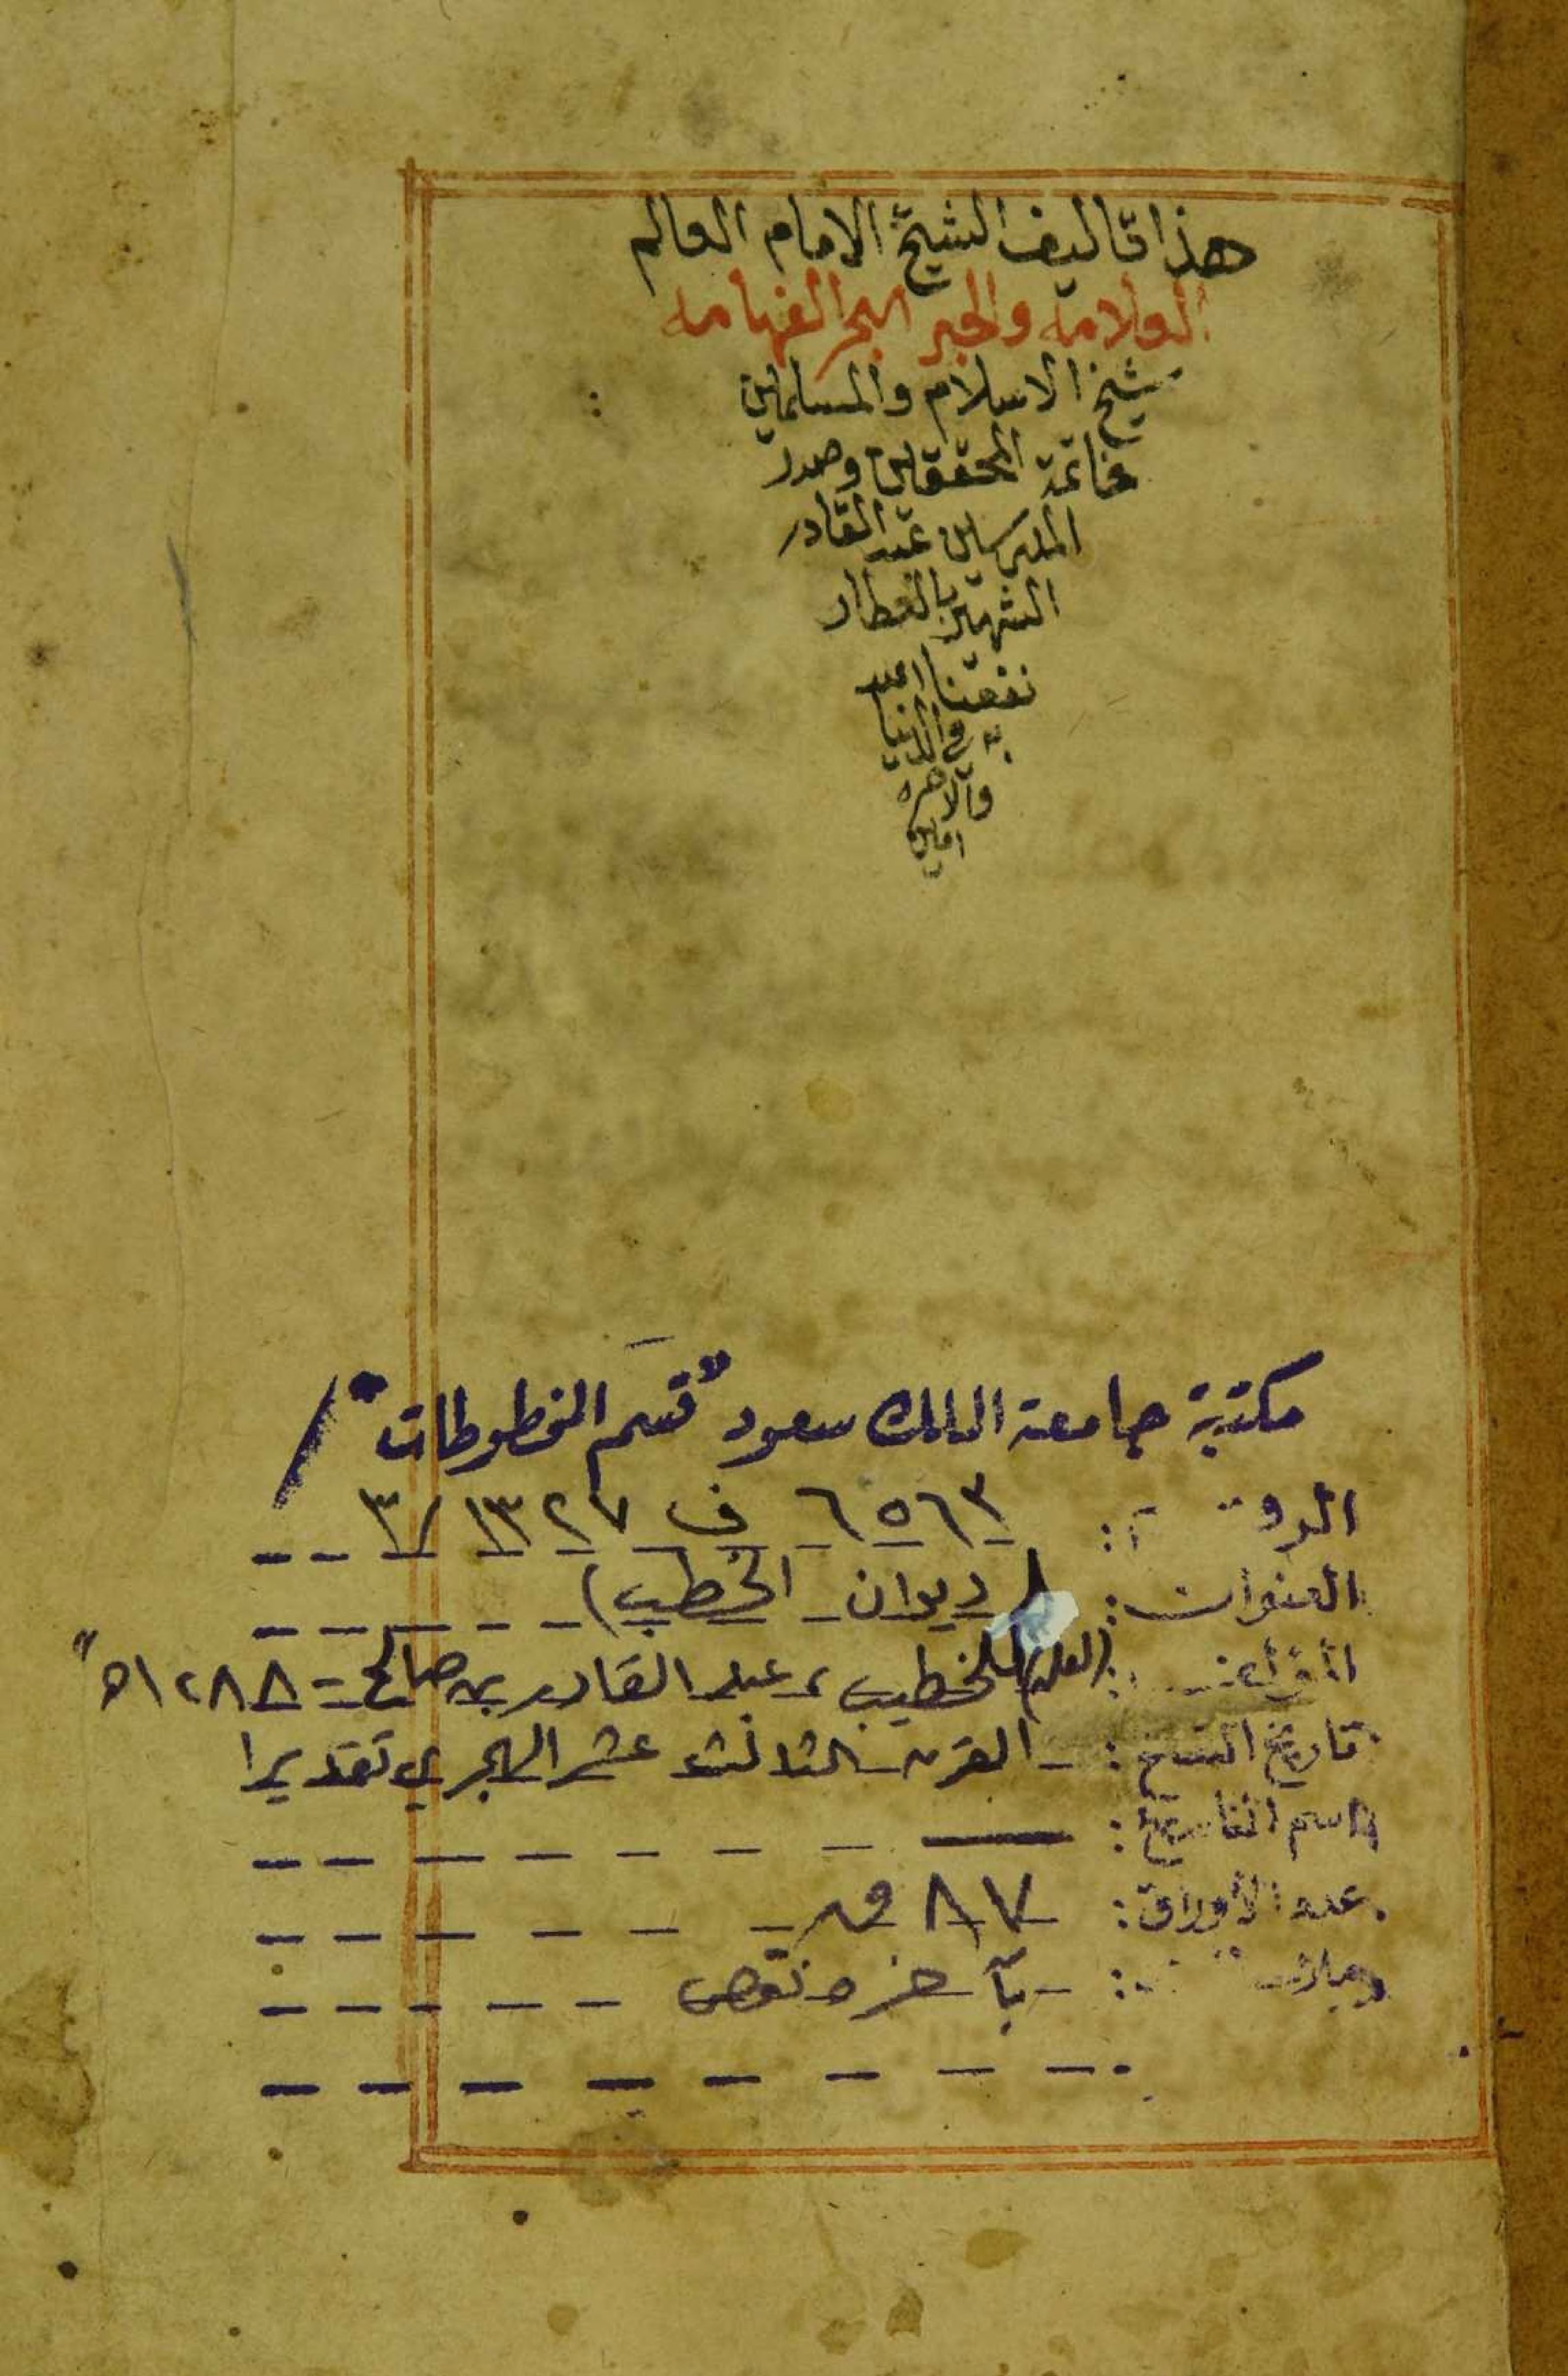 هذا تاليف الشيخ الامام العالم
العلامه والحبر البحر الفهامه
شيخ الاسلام والمسلمين
خاتمة المحققين وصدر
المدرسين عبد القادر
الشهير بالعطار
نفعنا الله
به في الدنيا
والاخره
امين
مكتبة جامعة الملك سعود "قسم المخطوطات"
الرقم: ٦٥٦٣ ف ١٣٢٧/٣
العنوان: (ديوان الخطيب)
المؤلف: الخطيب، عبد القادر بن صالح - ١٢٨٨هـ
تاريخ النسخ: القرن الثالث عشر الهجري تقديرا
اسم الناسخ:
عدد الأوراق: ٨٧ ور
بآخره نقص